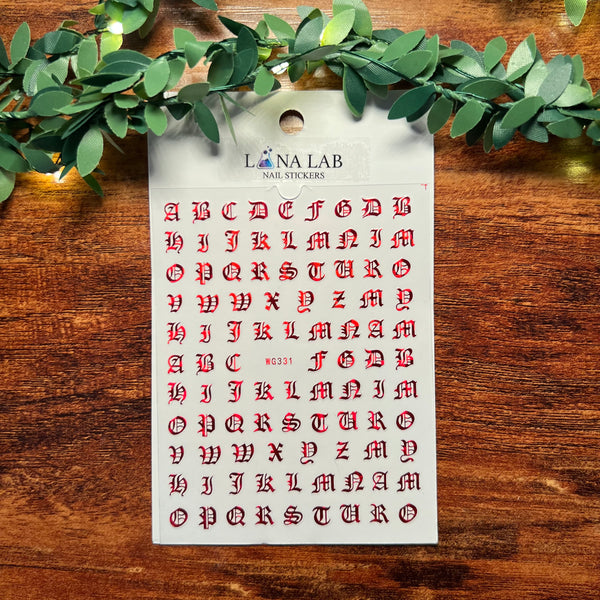 LANA LAB
NAIL STICKERS
A B C D E F G D B
H I J K L M N I M
O P Q R S T U R O
V W W X Y Z M Y
H I J K L M N A M
A B C WG331 F G D B
H I J K L M N I M
O P Q R S T U R O
V W W X Y Z M Y
H I J K L M N A M
O P Q R S T U R O